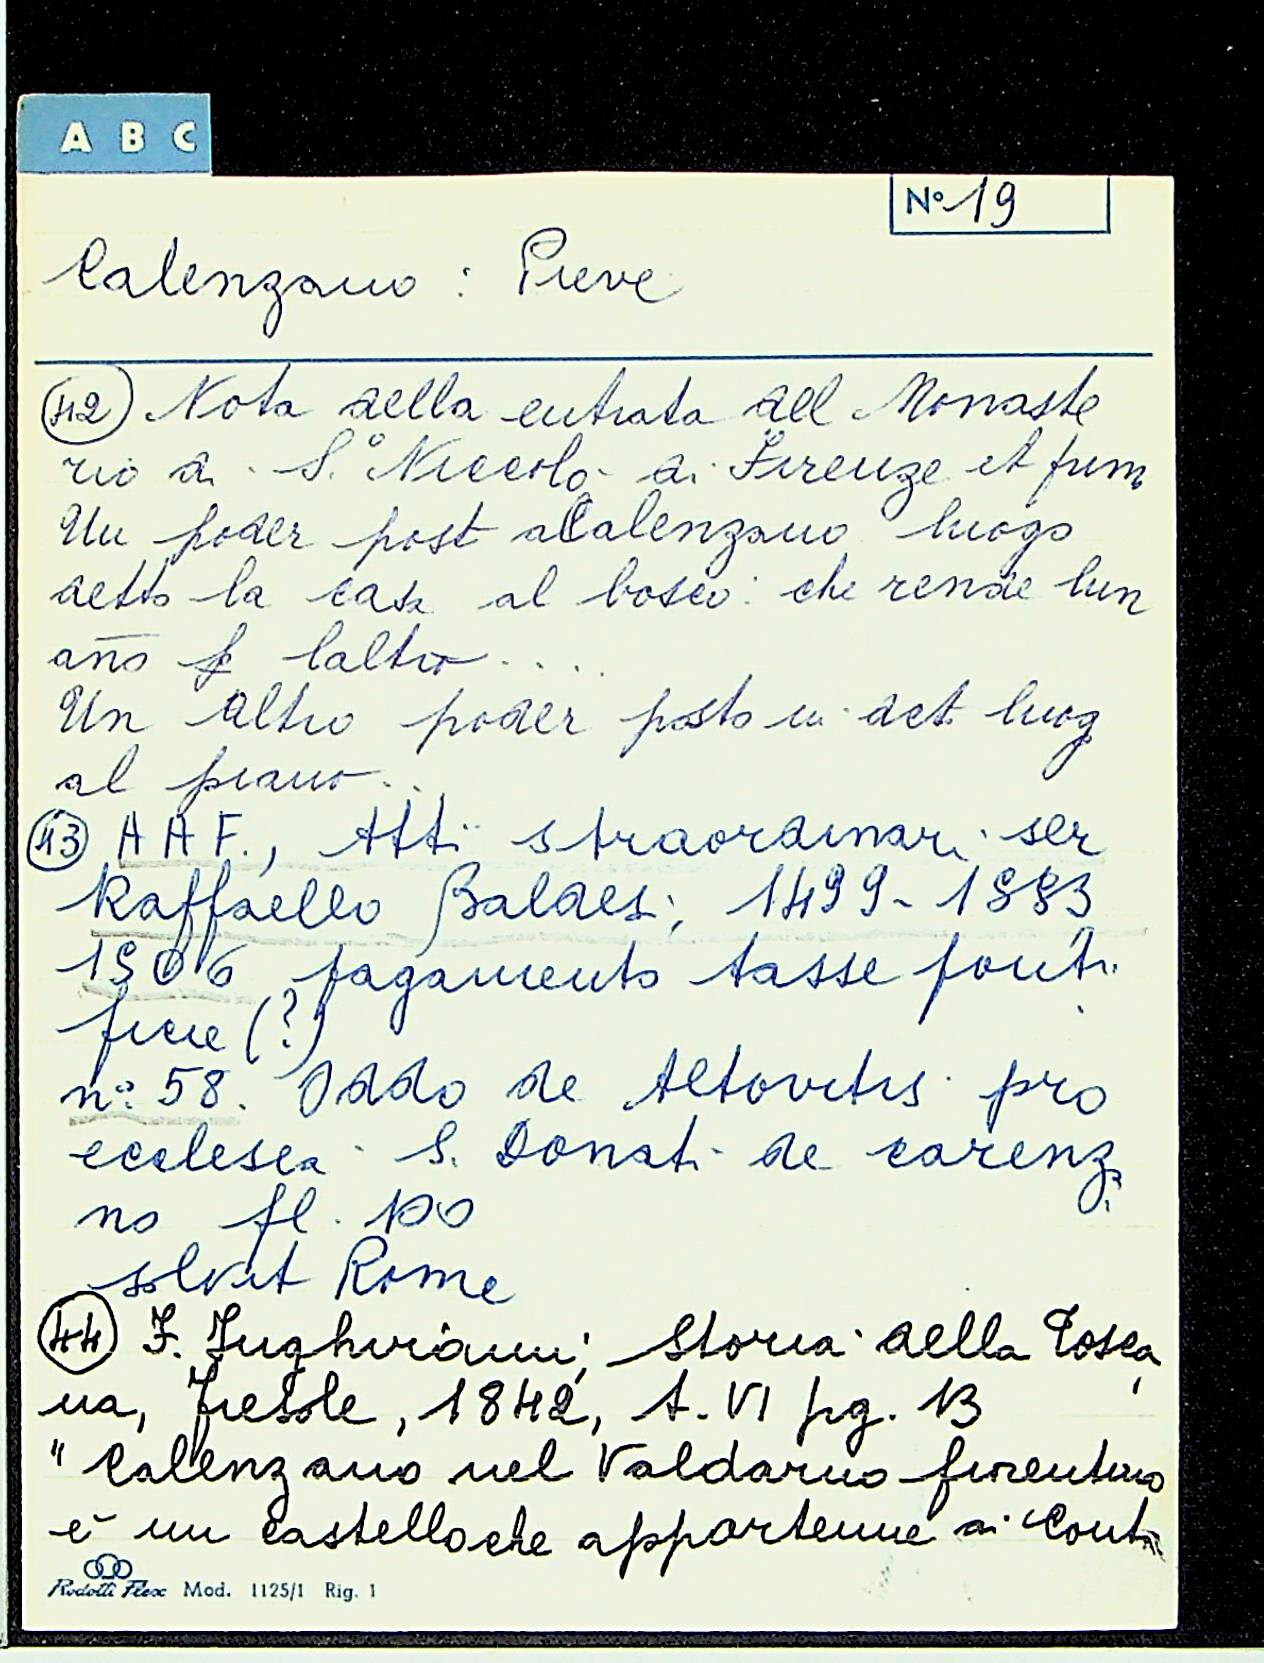 A B C
Nº 19
Calenzano : Pieve
(42) Nota della entrata del Monaste
rio di S.º Niccolò di Firenze et prim
Un poder post a Calenzano luogo
detto la casa al bosco: che rende lun
año p laltro ....
Un altro poder posto in det. luog
al piano...
(43) A A F., Atti straordinari ser
Raffaello Baldesi, 1499-1553
1506 pagamento tasse ponti
ficie (?)
nº 58. Oddo de Altovitis pro
ecclesea S. Donati de carenz
no fl. 100
solvit Rome
(44) F. Inghirami, Storia della Tosca
na, Fiesole, 1842, t. VI pg. 13
"Calenzano nel Valdarno fiorentino
è un castello che appartenne ai Conti
Rodotti Flex Mod. 1125/1 Rig. 1